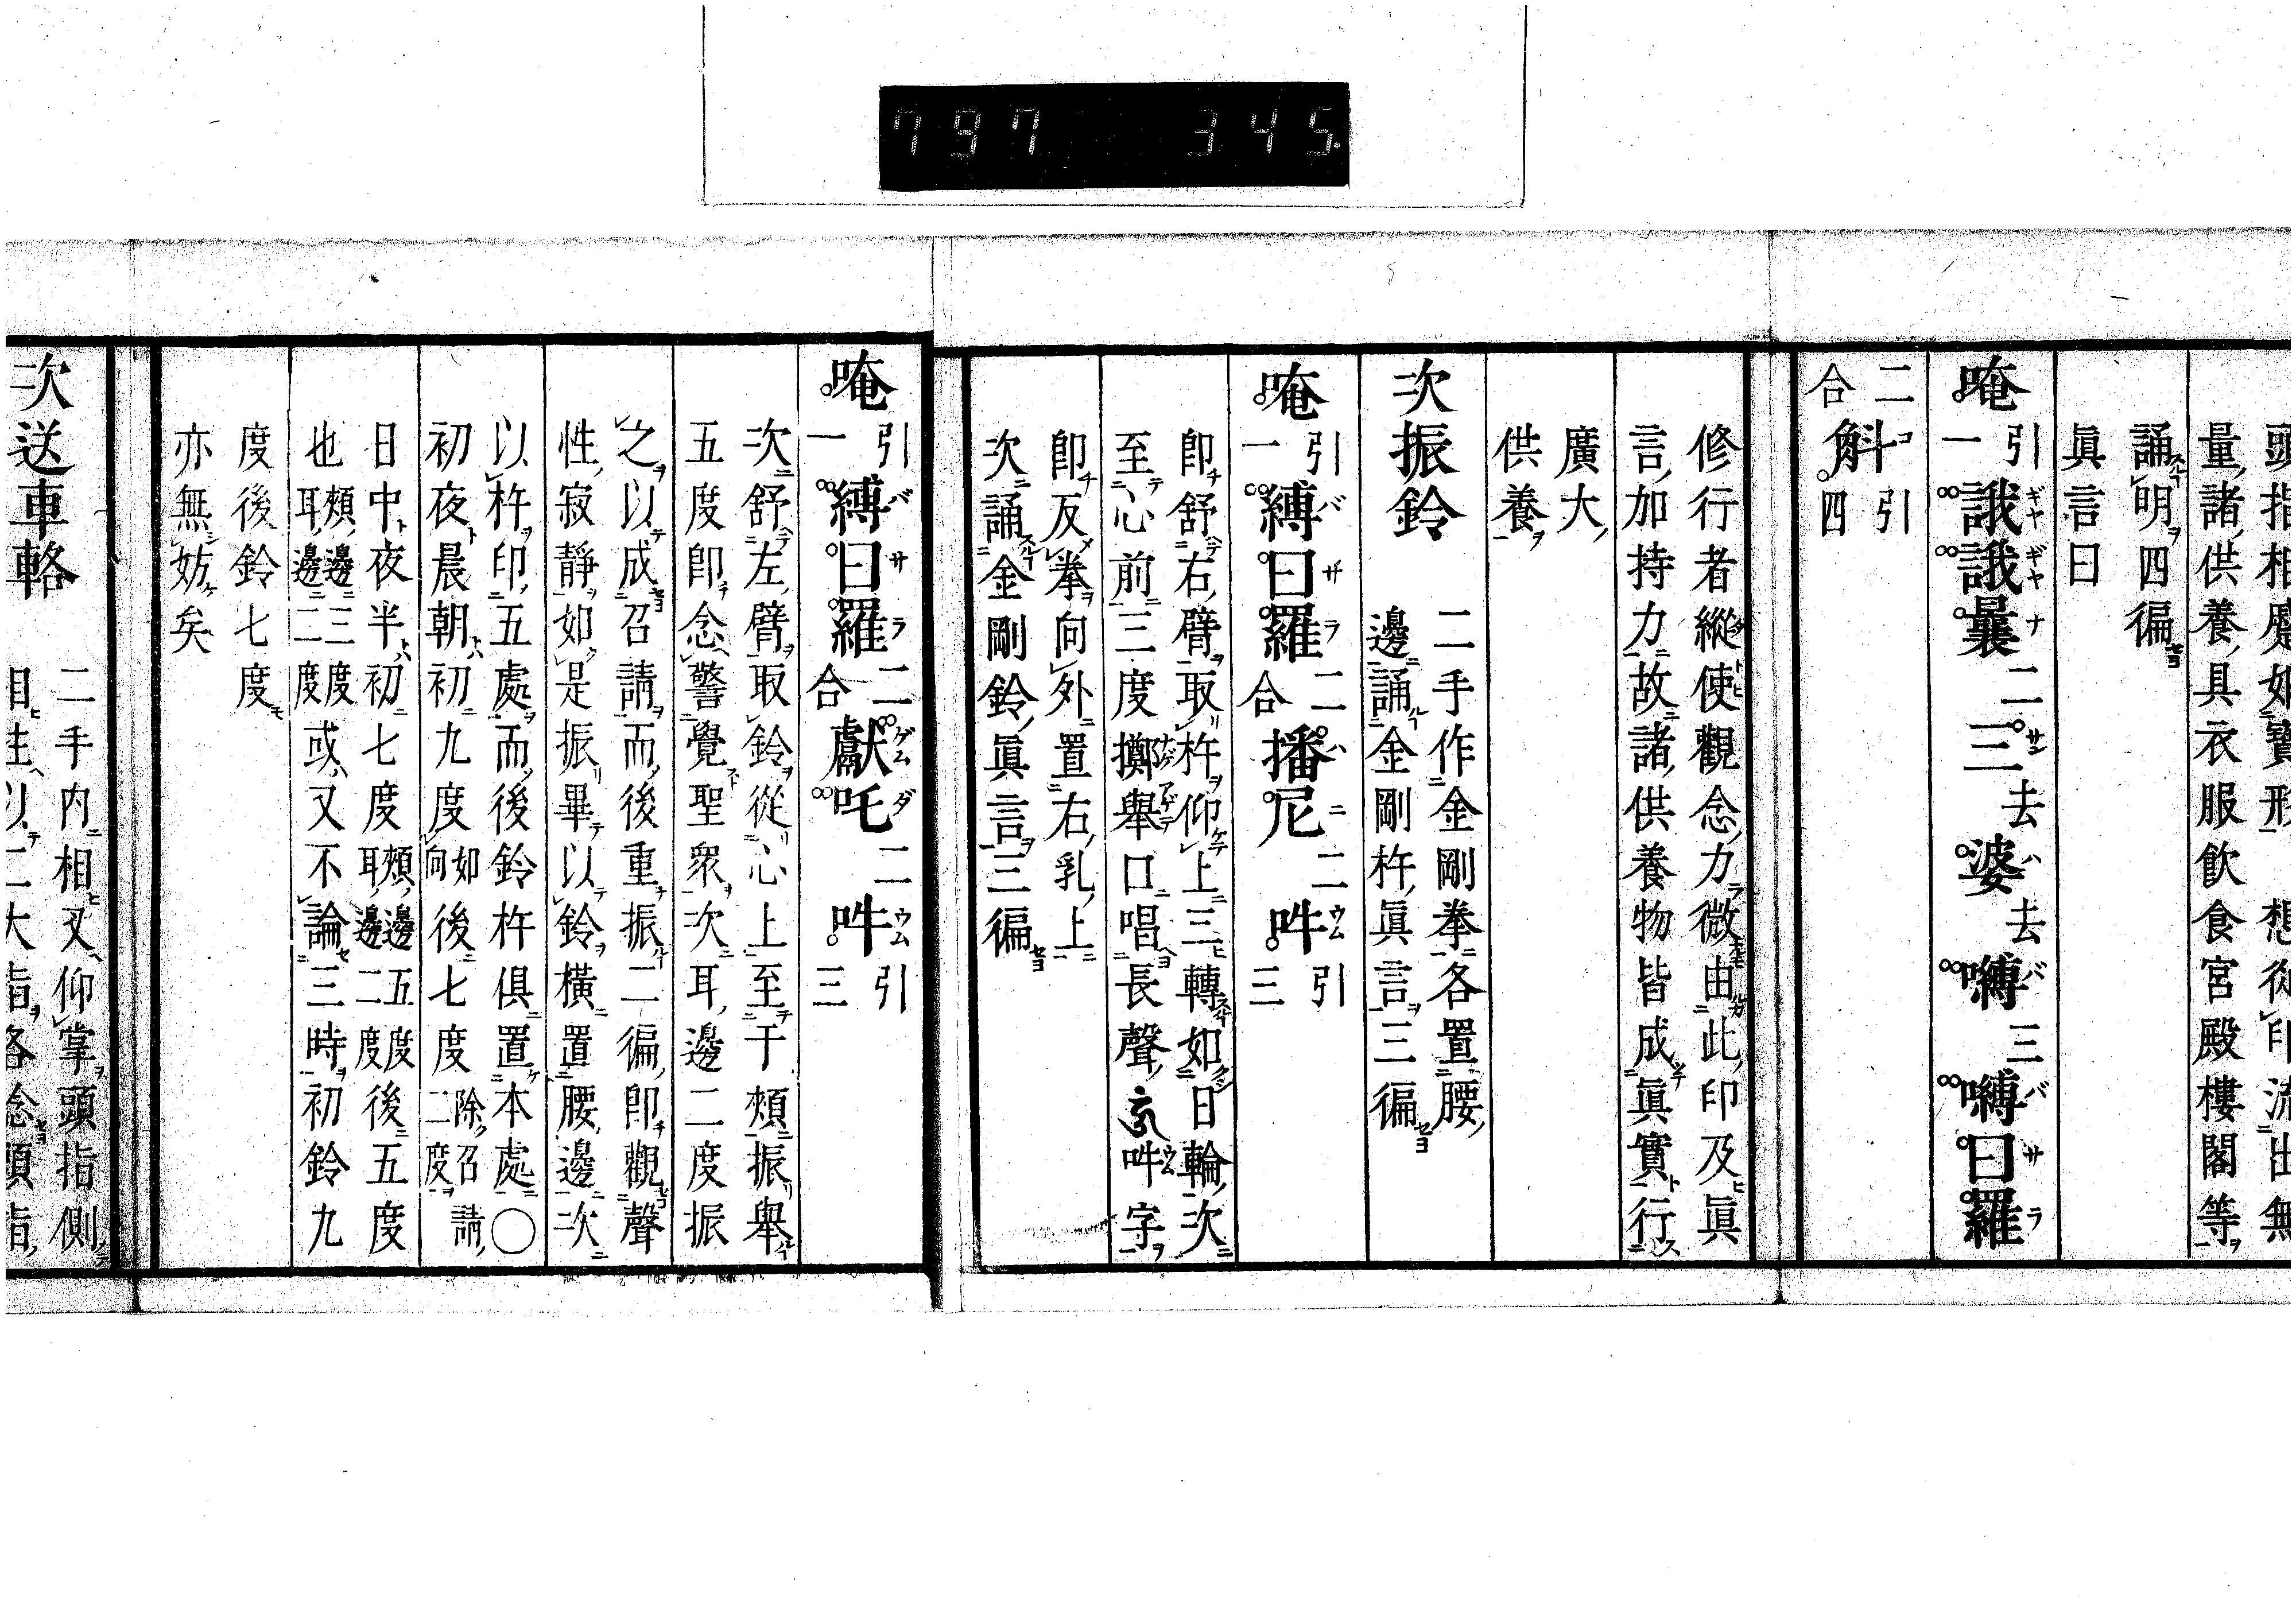 797 345
頭指相蹙如寶形 想從印流出無
量諸供養具衣服飲食宮殿樓閣等
誦明四徧
眞言曰
唵引一誐誐曩二三去婆去嚩三嚩曰羅
二合斛引四
修行者縱使觀念力微由此印及眞
言加持力故諸供養物皆成眞實行
廣大
供養
次振鈴 二手作金剛拳各置腰
邊誦金剛杵眞言三徧
唵引一縛曰羅二合播尼二吽引三
卽舒右臂取杵仰上三轉如日輪次
至心前三度擲舉口唱長聲吽字
卽反拳向外置右乳上
次誦金剛鈴眞言三徧
唵引一縛曰羅二合獻吒二吽引三
次舒左臂取鈴從心上至于頰振舉
五度卽念警覺聖衆次耳邊二度振
之以成召請而後重振二徧卽觀聲
性寂靜如是振畢以鈴橫置腰邊次
以杵印五處而後鈴杵俱置本處○
初夜晨朝初九度如向後七度除召請二度
日中夜半初七度頰邊五度耳邊二度後五度
也頰邊三度耳邊二度或又不論三時初鈴九
度後鈴七度
亦無妨矣
次送車輅 二手内相叉仰掌頭指側
相 以二大指各 頭指